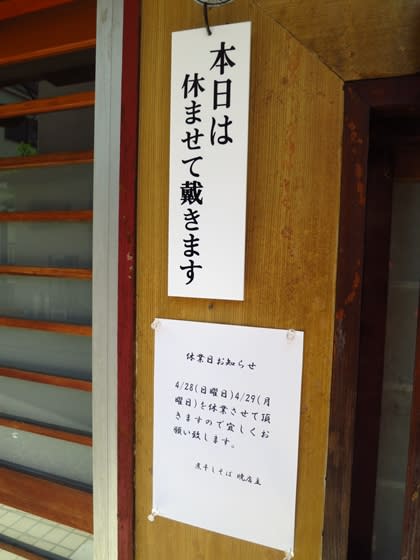 本日は
休ませて戴きます
休業日お知らせ
4/28(日曜日)4/29(月
曜日)を休業させて頂
きますので宜しくお
願い致します。
煮干しそば 暁店主